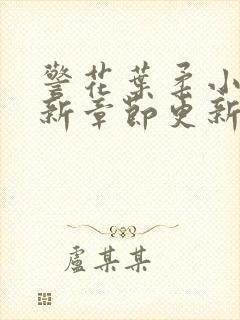 警花葉柔小
新章節更新
盧某某